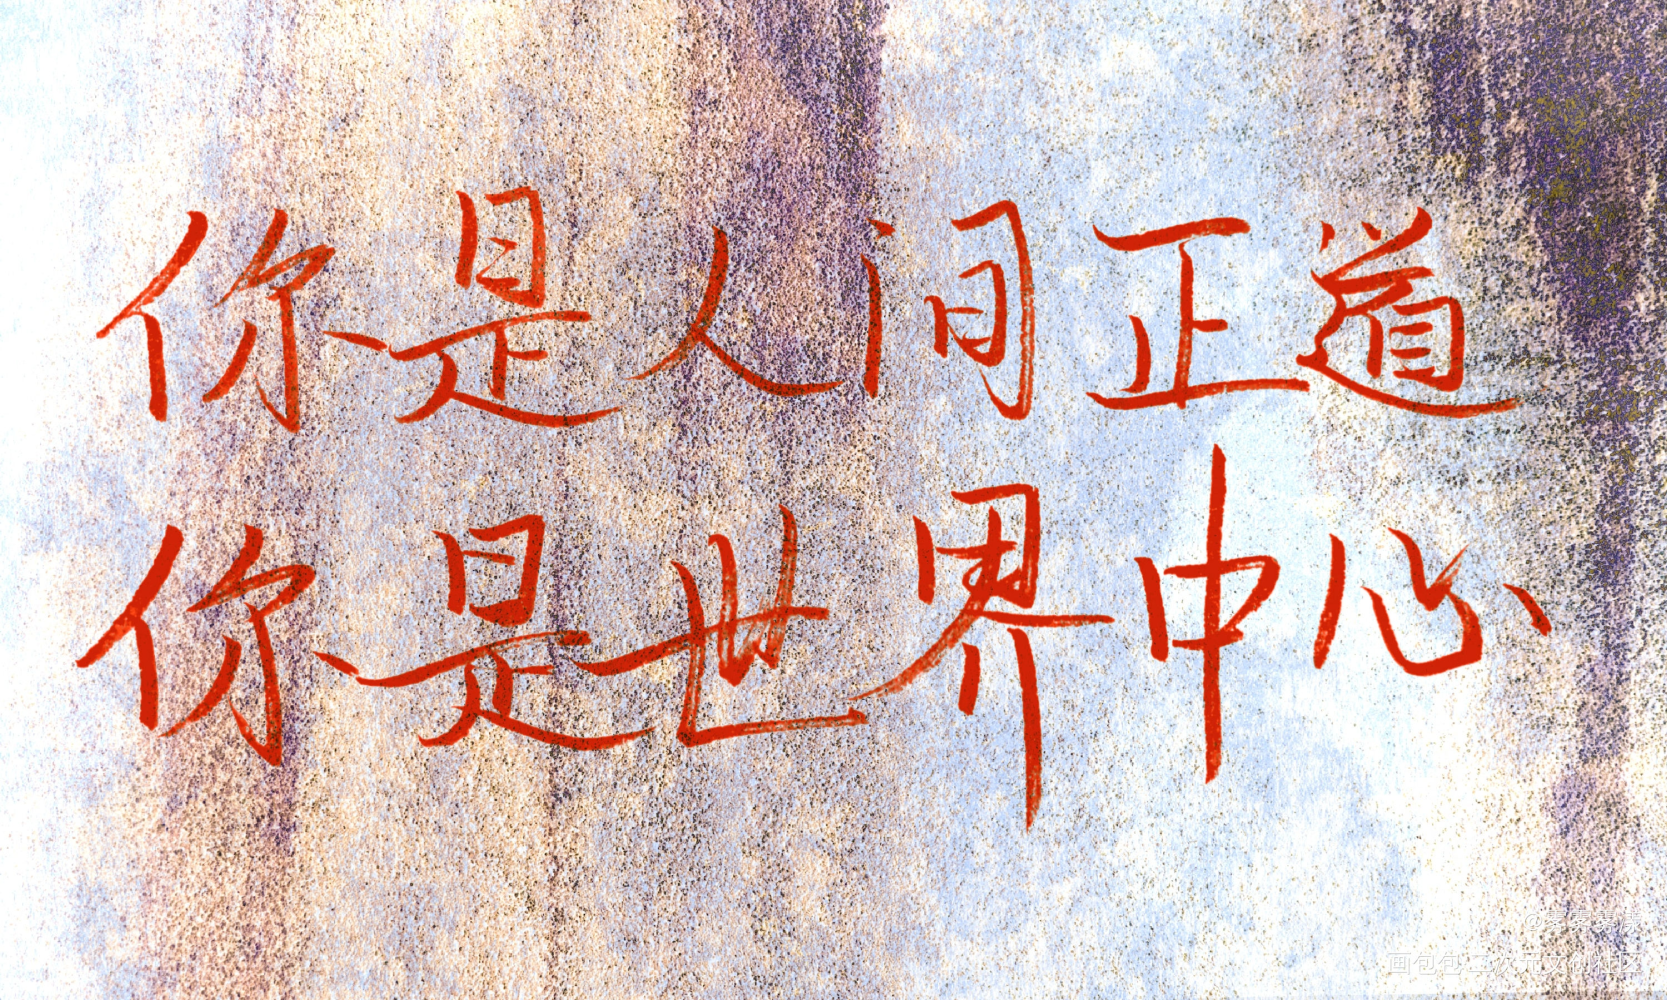 你是人间正道
你是世界中心
画包包二次元文创社区